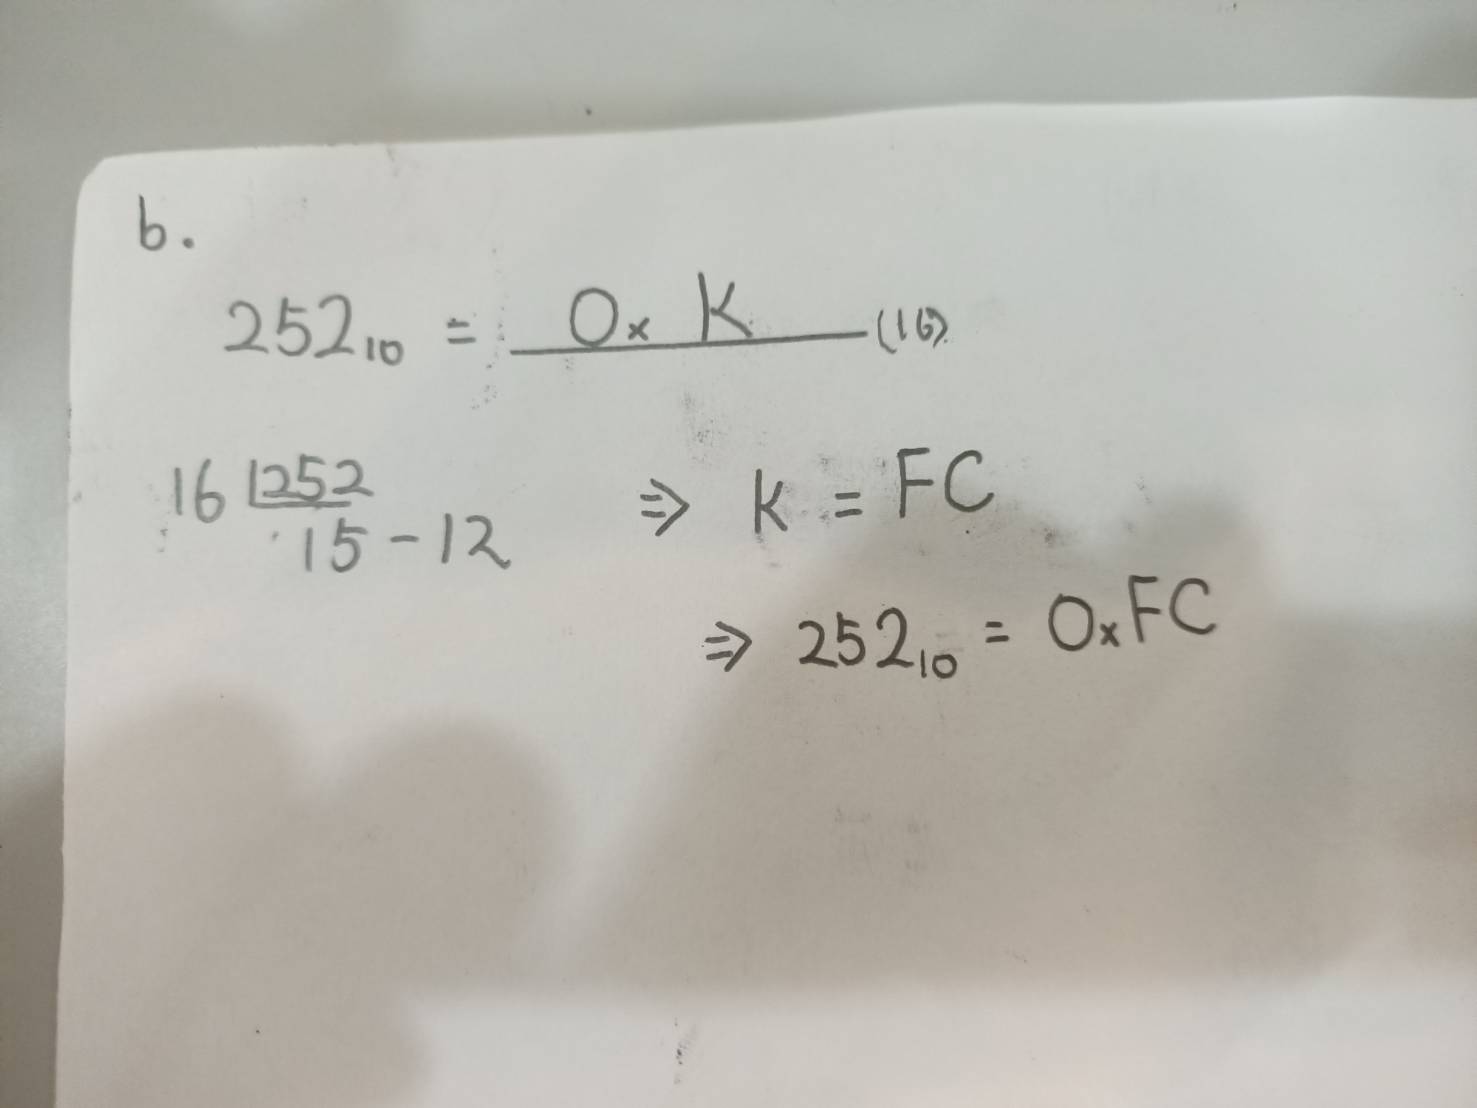 b.
252₁₀ = 0x K (16)
16 252
15 - 12
⇒ K = FC
⇒ 252₁₀ = 0xFC